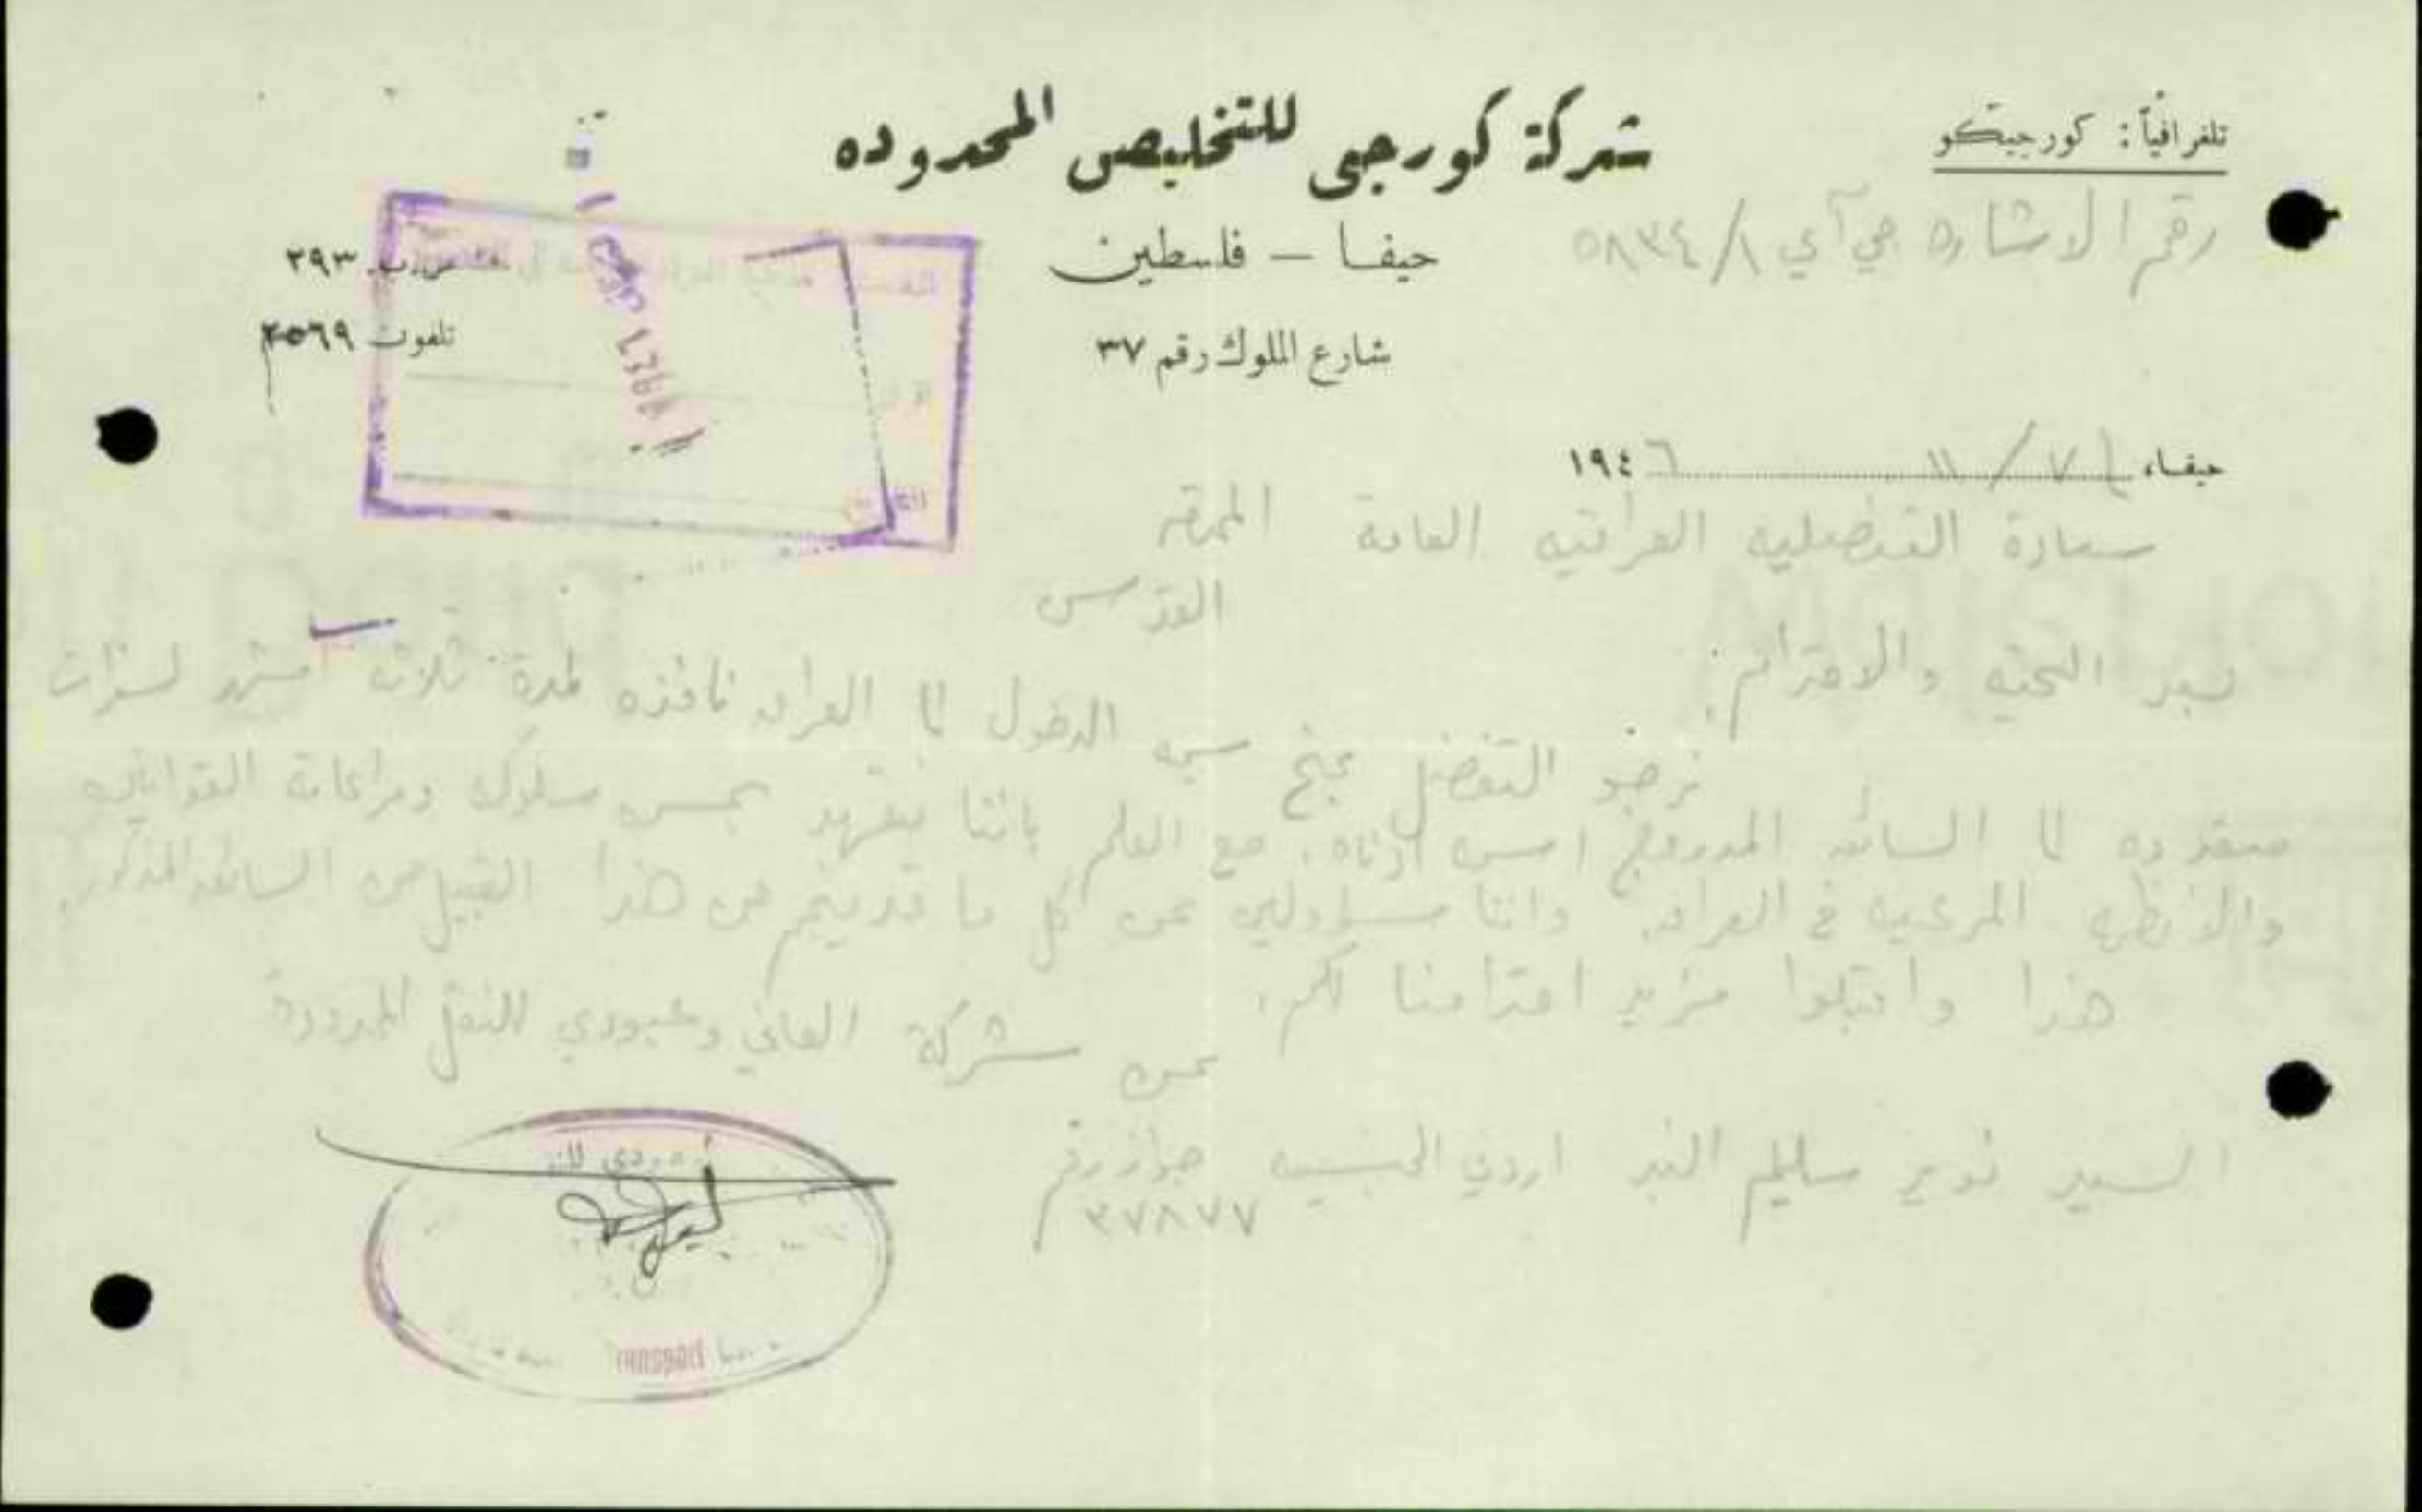 تلغرافياً: كورجيتكو
شركة كورجي للتخليص المحدوده
رقم الاشاره جي آي ٥٨٣٤/٨
حيفا – فلسطين
ص.ب. ٢٩٣
شارع الملوك رقم ٣٧
تلفون ٢٥٦٩
حيفا، ١١ ١٩٤٦
سعادة القنصلية العراقية العامة المحترمة
القدس
بعد التحية والاحترام:
نرجو التفضل بمنح سمة الدخول الى العراق نافذه لمدة ثلاث اشهر لسفرات
متعدده الى السائق المدروج اسمه ادناه، مع العلم باننا نتعهد بحسن سلوكه ومراعاة القوانين
والانظمة المرعية في العراق، واننا مسؤولين عن كل ما قد ينجم من هذا القبيل من السائق المذكور.
هذا واقبلوا مزيد احترامنا لكم،
عن شركة العاني وعبودي للنقل المحدودة
السيد سليم اردني الجنسية جواز رقم
٣٧٨٧٧
TRANSPORT